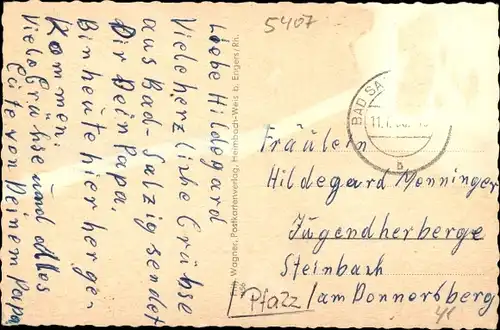 5407
Liebe Hildegard
Viele herzliche Grühse
aus Bad-Salzig sendet
Dir Dein Papa.
Bin heute hier herge-
Kommen:
Viele Grühse und alles
Gute von Deinem Papa
Wagner, Postkartenverlag, Heimbach-Weis b. Engers/Rh.
BAD SA
11.
b
Fräulein
Hildegard Menninger
Jugendherberge
Steinbach
(Pfalz) am Donnersberg